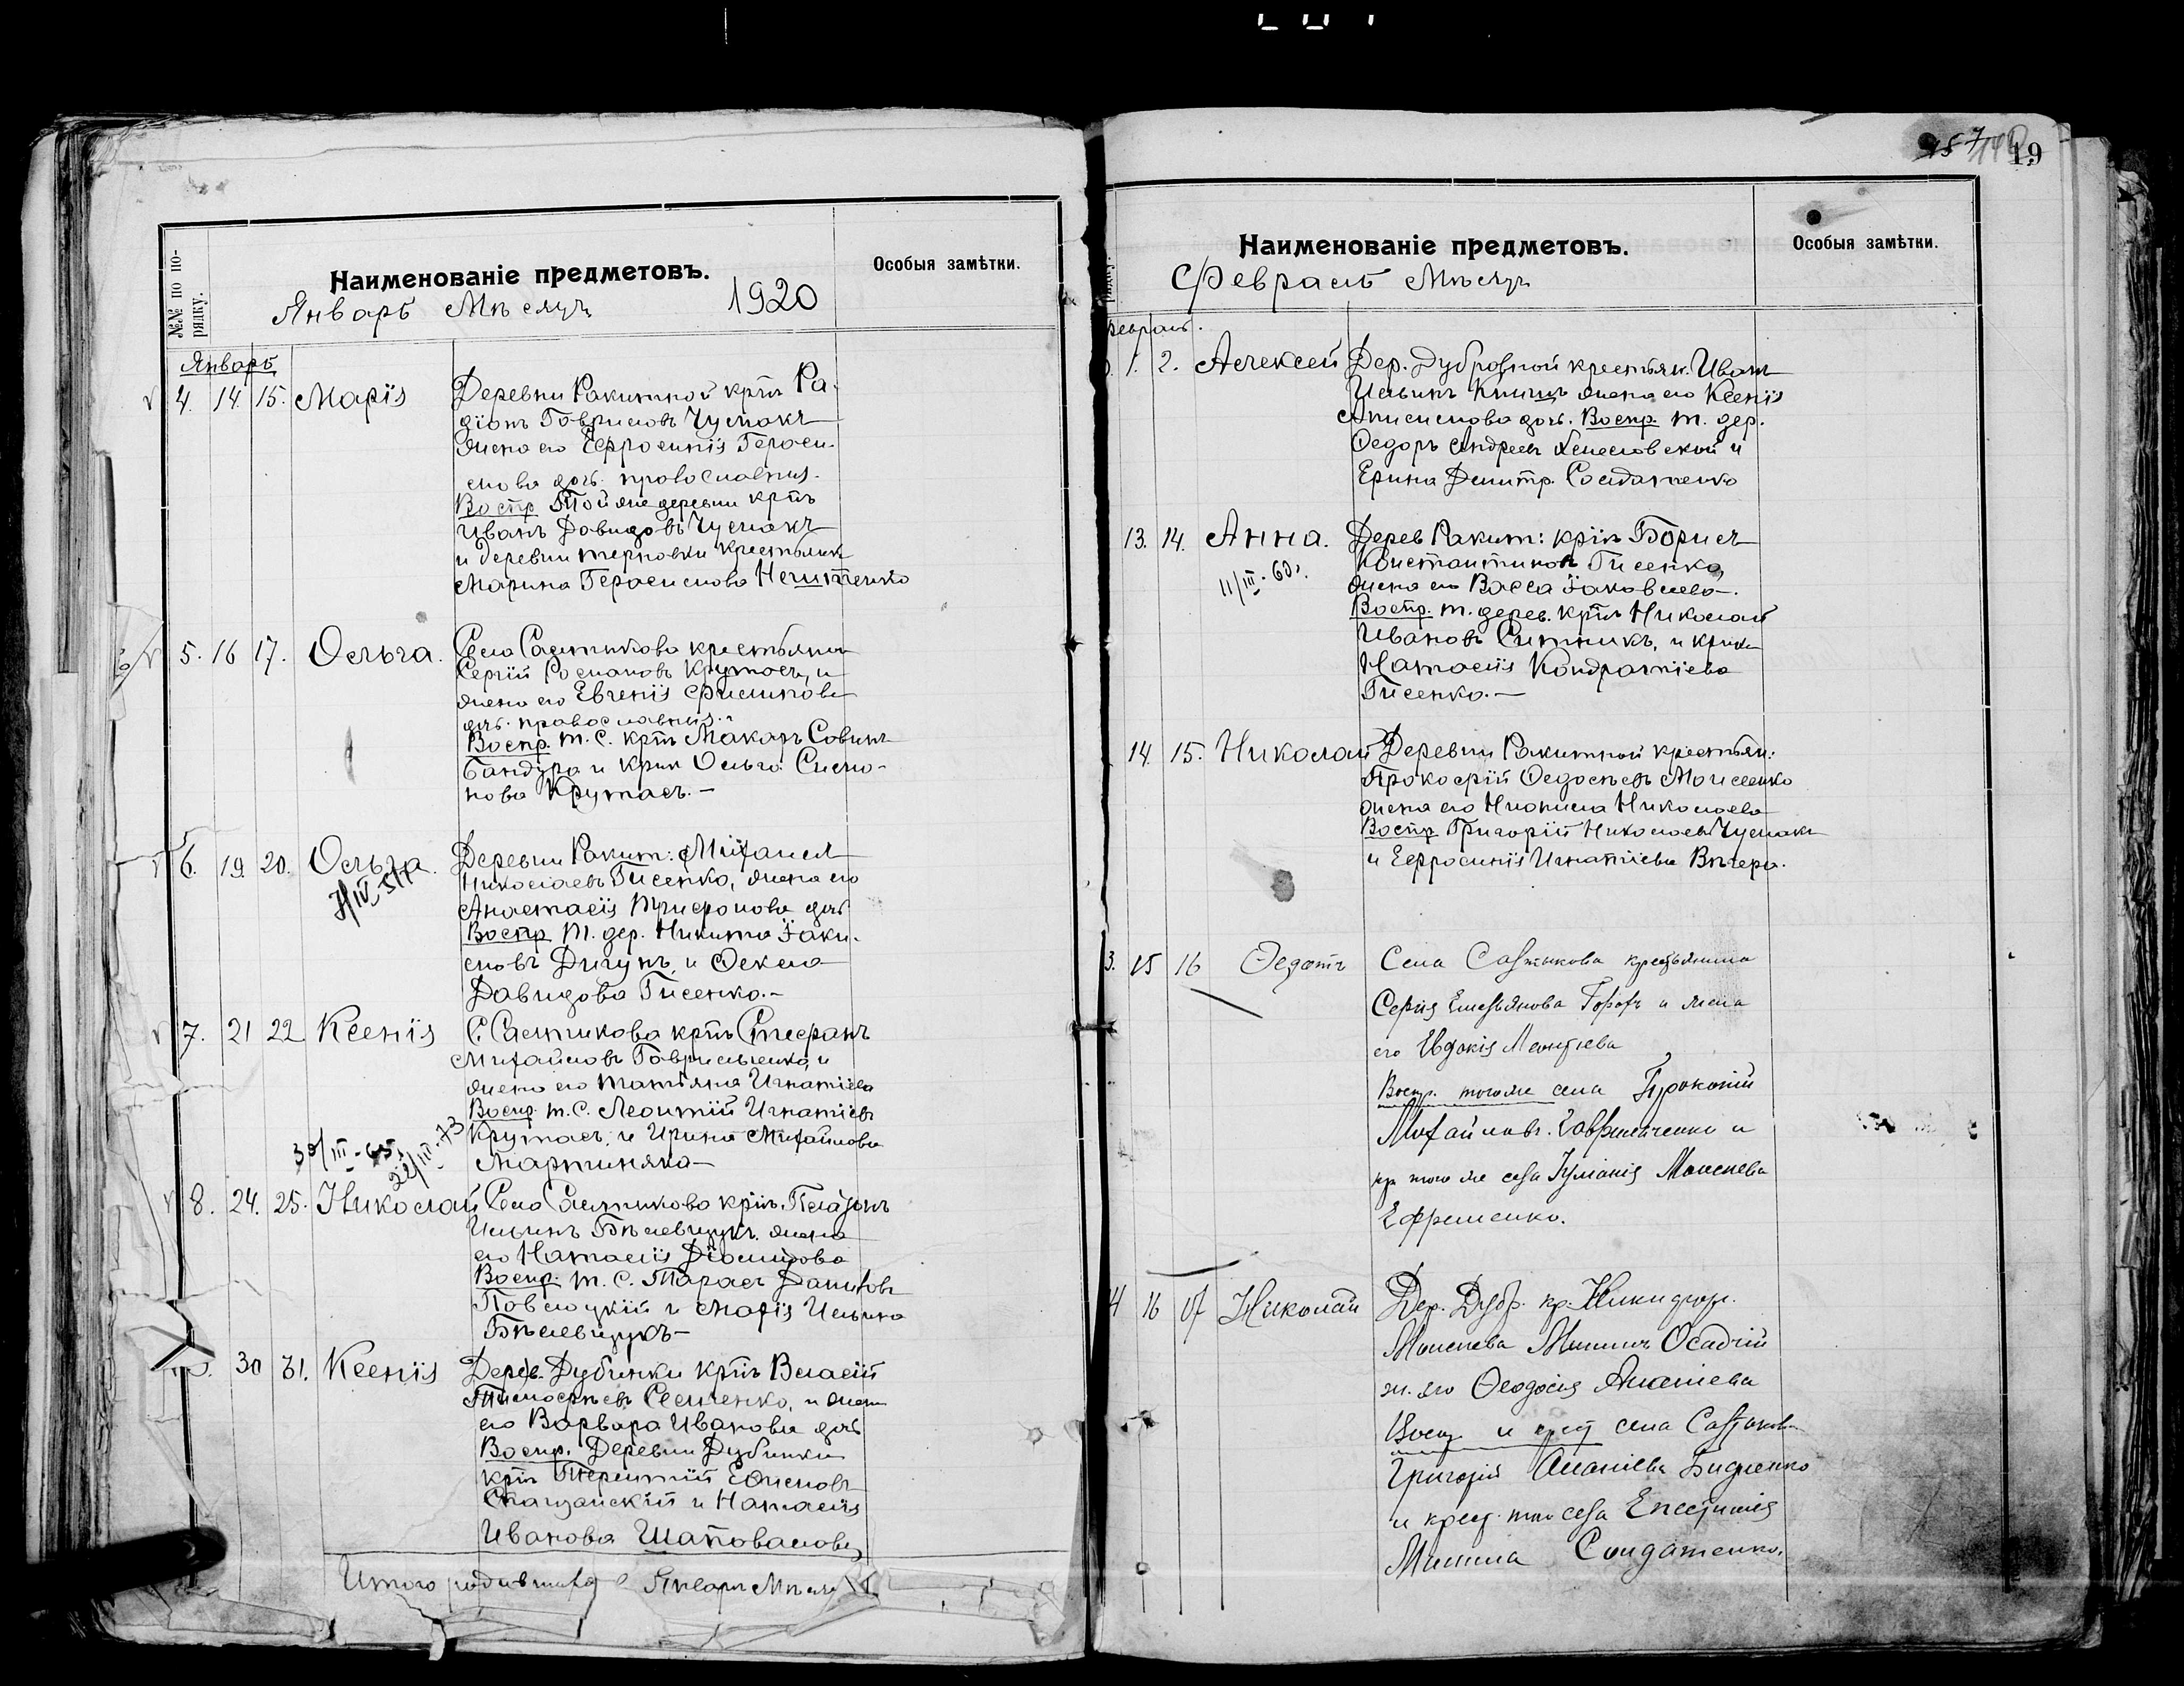 №№ по порядку.
Наименованіе предметовъ.
Особыя замѣтки.
Январь Мѣсяцъ 1920
Январь
4. 14. 15. Марія Деревни Ракитной крт҃ъ Ра-
діонъ Гавриловъ Чумакъ
жена его Ефросинія Гераси-
мова дочь. православныя.
Воспр. Той же деревни крт҃ъ
Иванъ Давидовъ Чумакъ
и деревни Терновки крестьянк
Марина Герасимова
5. 16 17. Ольга. Села Салтикова крестьянин
Сергій Романовъ Крутасъ, и
жена его Евгенія Филипова
дчь. православныя.
Воспр. т. с. крт҃ъ Макаръ Савинъ
Бандура и крнк Ольга Симо-
нова Крутасъ.-
6. 19. 20. Ольга. Деревни Ракит: Михаилъ
Николаевъ Гисенко, жена его
Анастасія Трифонова дчь
Воспр. т. дер. Никита Іаки-
мовъ Дигунъ, и Фекла
Давидова Гисенко.-
7. 21 22 Ксенія С. Салтикова крт҃ъ Стефанъ
Михайловъ Гаврильченко, и
жена его Татіяна Игнатіева
Воспр. т. с. Леонтій Игнатіевъ
30/III-65. 22/III-73 Крутасъ, и Ирина Михайлова
Мартиняка-
8. 24. 25. Николай Села Салтикова крт҃ъ. Платонъ
Ильинъ Бѣлевцукъ. жена
его Наталія Діомидова
Воспр. т. с. Тарасъ Даниловъ
Павлоцкій и Марія Ильина
Бѣлевцукъ-
30 31. Ксенія Дерев. Дубинки крт҃ъ Власій
Тимофѣевъ Семченко, и жена
его Варвара Иванова дчь
Воспр. Деревни Дубинки
крт҃ъ Терентій Ефимовъ
и Наталія
Иванова Шаповалова
Итого родившихся Январь Мѣсяц
19
Наименованіе предметовъ.
Особыя замѣтки.
Февраль Мѣсяцъ
Февраль.
1. 2. Алексей Дер. Дубровной крестьян. Иванъ
Ильинъ жена его Ксенія
Анисимова дочь. Воспр. т. дер.
Ѳедоръ Андреевъ и
Ерина Димитр. Солдатенко
13. 14. Анна. Дерев Ракит: крт҃ъ Борисъ
Константиновъ Гисенко,
11/III-60. жена его Васса Іаковлева-.
Воспр. т. дерев. крт҃ъ Николай
Ивановъ Ситникъ, и крнка
Наталія Кондратіева
Гисенко.-
14. 15. Николай Деревни Ракитной крестьян:
Прокофій Ѳедосѣевъ Моисеенко
жена его Николаева
Воспр Григорій Николаевъ Чумакъ
и Ефросинія Игнатіева Вечера.
3. 15 16 Ѳедотъ Села Салтикова крестьянина
Сергія Емельянова и жена
его Евдокія Леонтіева
Воспр. того же села Прокопій
Михайловъ. Гаврильченко и
кр. того же села Іуліанія Моисеева
Ефременко.
4 16 17 Николай Дер. Дубр. кр. Никифор.
Моисеева Осадчій
ж. его Ѳеодосія Ананіева
Воспр и крест села Салтиков
Григорій Ананіевъ Бидненко
и крест. того села
Солдатенко.